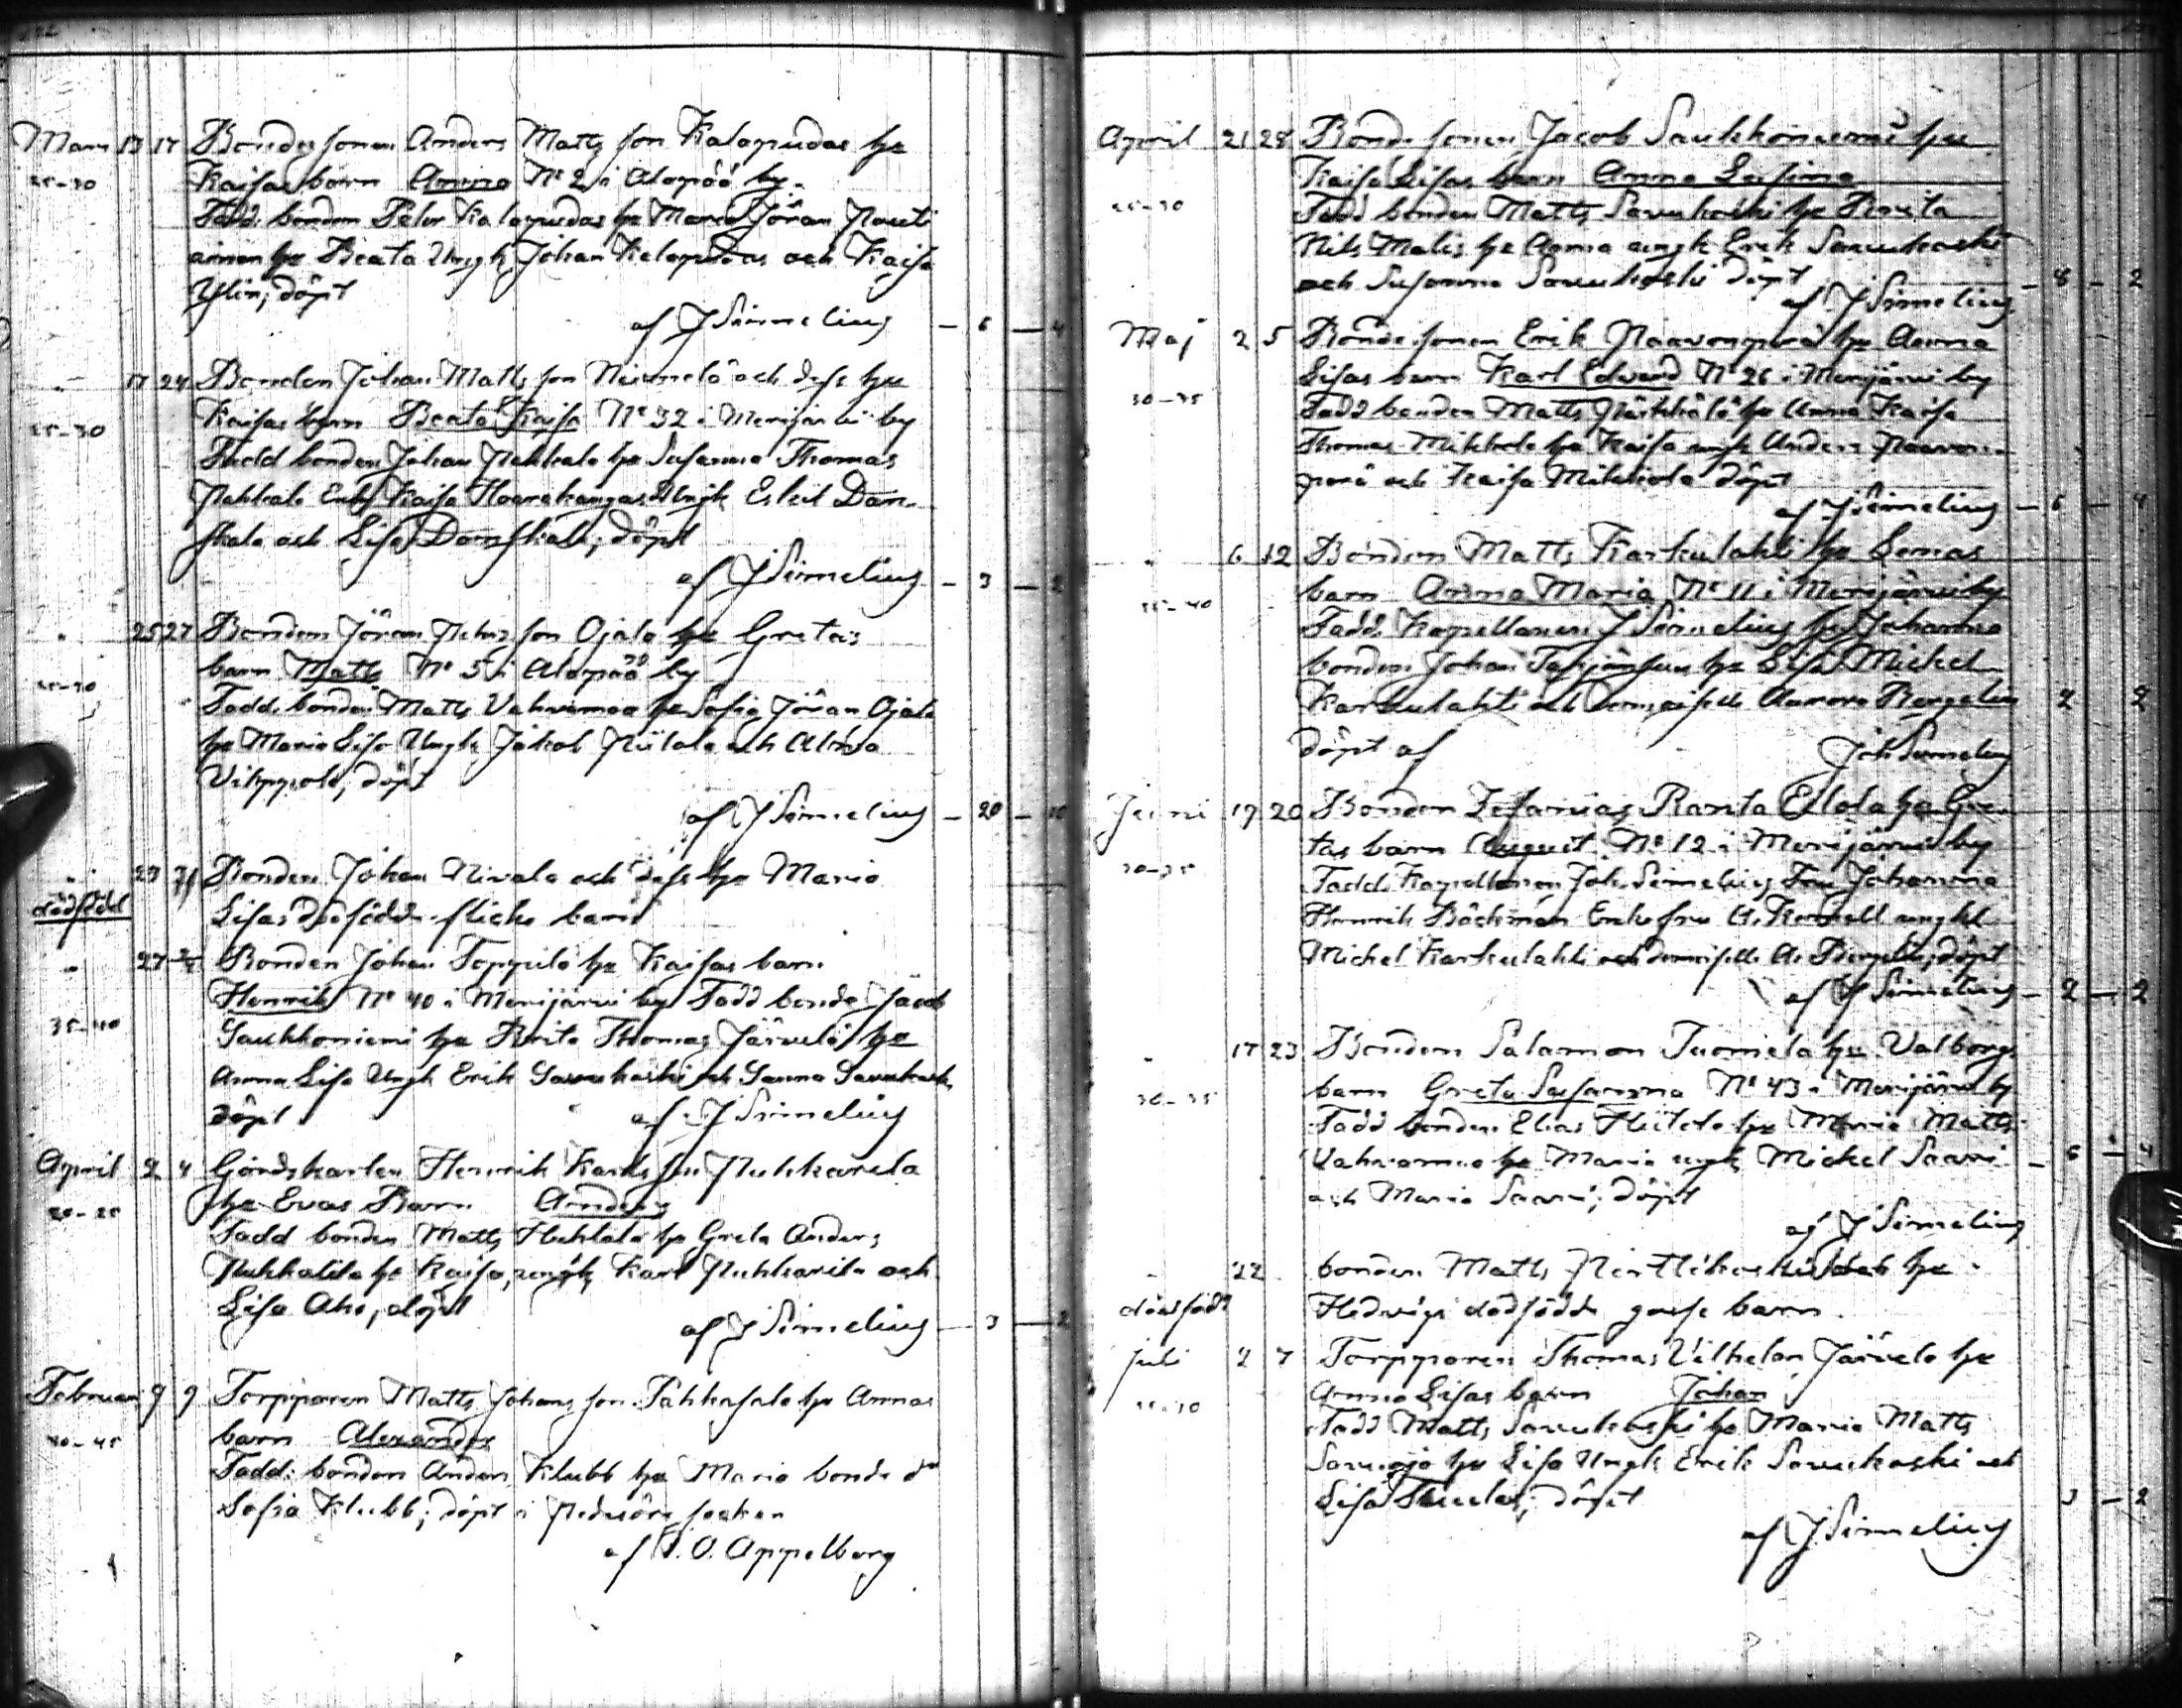 Mars 13 17 Bondesonen Anders Matts son Kalapudas hu
25-30 Kaisas barn Anna No 2 i Alapää by.
Fadd. bonden Petter Kalapudas hu Maria Jöran Pauti
ainen hu Beata Ungk Johan Kalapudas och Kaisa
Ylin; döpt
af J Simelius - 6 - 4
" 17 24 Bonden Johan Matts son Niemelä och dess hu
25-30 Kaisas barn Beata Kaisa No 32 i Merijärvi by
Fadd bonden Johan Pahkala hu Susanna Thomas
Pahkala Enk Kaisa Haarakangas Ungk Eskil Dan-
skala och Lisa Danskala; döpt
af J Simelius - 3 - 2
" 25 27 Bonden Jöran Petersson Ojala hu Gretas
barn Matts No 5 i Alapää by
25-30 Fadd. bonden Matts Vahramaa hu Sofia Jöran Ojala
hu Maria Lisa Ungk Jakob Niilola och
döpt
af J Simelius - 20 - 10
" 27 Bonden Johan Nivala och dess hu Maria
dödfödd Lisas dödfödda flicke barn
" 27 Bonden Johan Toppila hu Kaisas barn
Henrik No 40 i Merijärvi by Fadd bonde Jacob
35-40 Saukkoniemi hu Brita Thomas Järvelä hu
Anna Lisa Ungk Erik Savukoski och Sanna Savukoski
döpt af J Simelius
April 2 4 Gårdskarlen Henrik Karls son Puhkarila
20-25 hu Evas Barn Anders
Fadd bonden Matts Huhtala hu Greta Anders
hu Kaisa, ungk Karl Puhkarila och
Lisa Aho, döpt
af J Simelius - 3 - 2
Februari 9 9 Torpparen Matts Johans son Pahkasalo hu Annas
40-45 barn Alexander
Fadd: bonden Anders Klubb hu Maria bonde dr
Sofia Klubb; döpt i Pedersöre socken
af Appelberg
April 21 28 Bondesonen Jacob Saukkoniemi hu
Kaisa Lisas barn Anna Lusina
25-30 Fadd bonden Matts Savukoski hu Brita
Nils Matis hu Anna ungk Erik Savukoski
och Susanna Savukoski döpt
af J Simelius - 8 - 2
Maj 2 5 Bondesonen Erik Paavonperä hu Anna
Lisas barn Karl Edvard No 26 i Merijärvi by
30-35 Fadd bonden Matts hu Anna Kaisa
Thomas Mikkola hu Kaisa ungk Anders Paavon-
perä och Kaisa Mikkola döpt
af J Simelius - 6 - 4
" 6 12 Bonden Matts Karkulahti hu Lenas
35-40 barn Anna Maria No 11 i Merijärvi by
Fadd. Kapellanen J Simelius hu Johanna
bonden Johan hu Lisa Michel
Karkulahti och demoiselle Aurora Bergelin 2 2
döpt af Joh Simelius
Juni 19 20 Bonden Zefanias Ranta Eilola hu Gre-
tas barn August No 12 i Merijärvi by
30-35 Fadd. Kapellanen Joh. Simelius Fru Johanna
Henrik Bäckman Enkefru ungkl
Michel Karkulahti och demoiselle A. Bergelin, döpt
af J Simelius - 2 - 2
" 17 23 Bonden Salamon Tuomela hu Valborgs
30-35 barn Greta Susanna No 43 i Merijärvi by
Fadd bonden Elias Hietala hu Maria Matts
Vahramaa hu Maria ungk Michel Saari - 6 - 4
och Maria Saari; döpt
af J Simelius
" 22 bonden Matts Pirttikoski och hu
dödfödt Hedvigs dödfödde gosse barn
Juli 2 7 Torpparen Thomas Vilhelm Järvelä hu
Anna Lisas barn Johan
25-30 Fadd Matts Savukoski hu Maria Matts
Savuoja hu Lisa Ungk Erik Savukoski och
Lisa döpt 3 - 2
af J Simelius